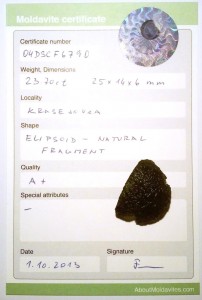 Moldavite certificate
Certificate number
Weight, Dimensions
25 x 16 x 6 mm
Locality
Shape
ELIPSOID - NATURAL
FRAGMENT
Quality
A+
Special attributes
-
Date
Signature
1.10.2013
AboutMoldavites.com